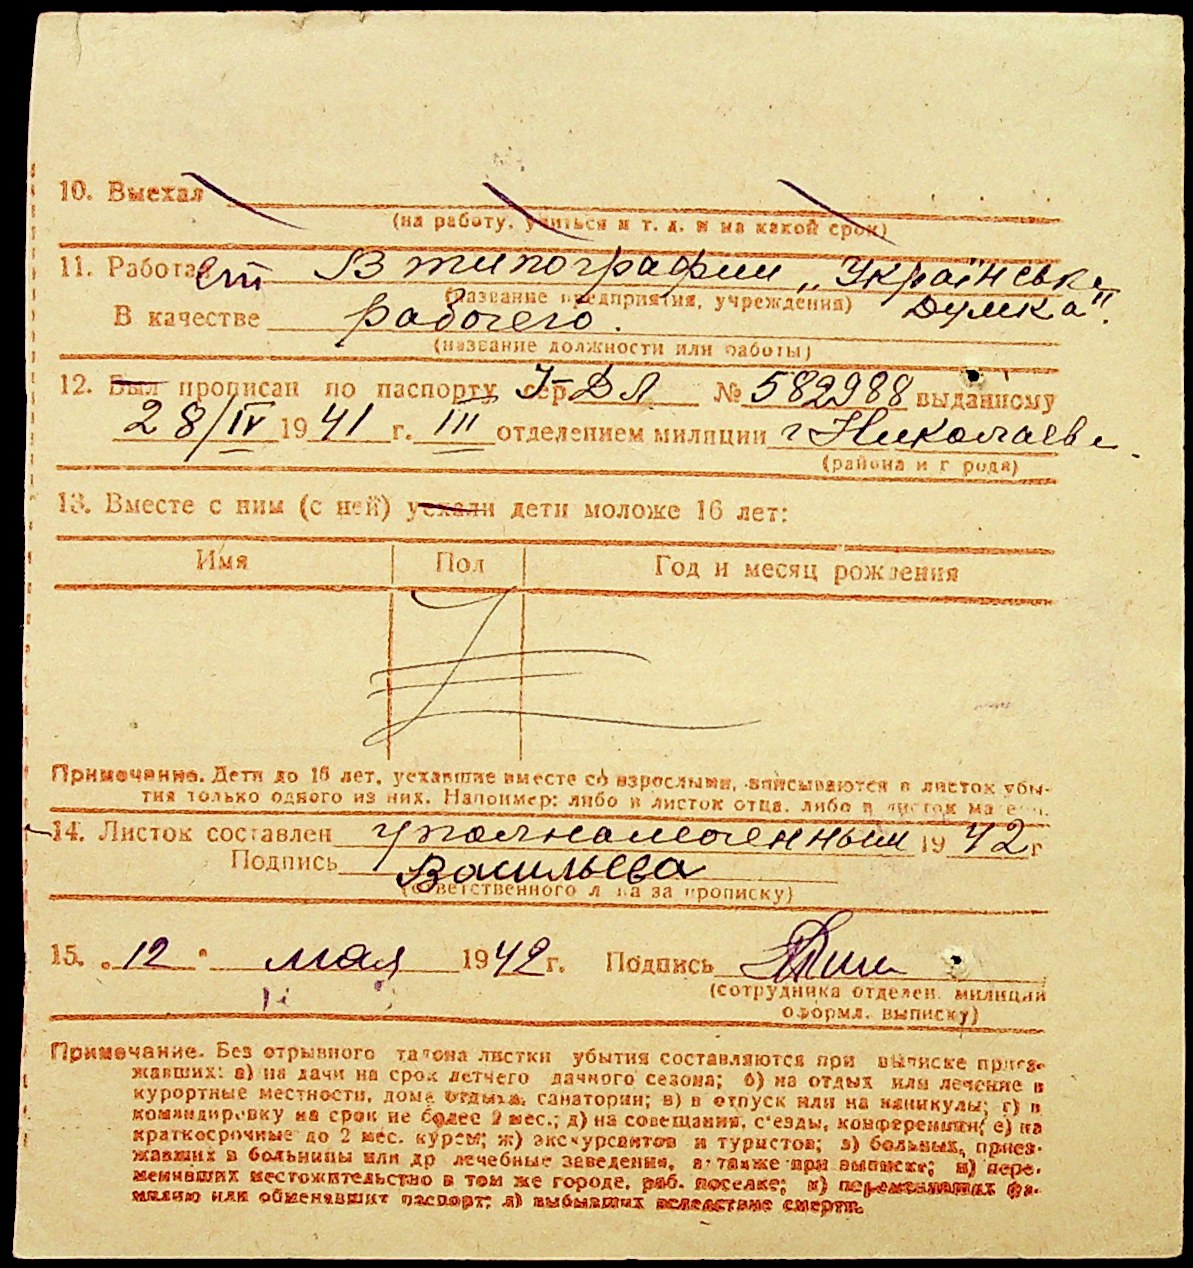 10. Выехал
(на работу, учиться и т. д. и на какой срок)
11. Работает В типографии „Українська
(название предприятия, учреждения) Думка".
В качестве рабочего.
(название должности или работы)
12. Был прописан по паспорту сер. І-ДЛ № 582988 выданному
28/IV 1941 г. III отделением милиции г Николаева.
(района и города)
13. Вместе с ним (с ней) уехали дети моложе 16 лет:
Имя Пол Год и месяц рождения
Примечание. Дети до 16 лет, уехавшие вместе со взрослыми, вписываются в листок убы-
тия только одного из них. Например: либо в листок отца, либо в листок матери.
14. Листок составлен уполномоченным 1942 г
Подпись Васильева
(ответственного лица за прописку)
15. „12" мая 1942 г. Подпись
(сотрудника отделен. милиции
оформл. выписку)
Примечание. Без отрывного талона листки убытия составляются при выписке приез-
жавших: а) на дачи на срок летнего дачного сезона; б) на отдых или лечение в
курортные местности, дома отдыха, санатории; в) в отпуск или на каникулы; г) в
командировку на срок не более 2 мес.; д) на совещания, с'езды, конференции; е) на
краткосрочные до 2 мес. курсы; ж) экскурсантов и туристов; з) больных, приез-
жавших в больницы или др лечебные заведения, а также при выписке; и) пере-
менивших местожительство в том же городе, раб. поселке; к) переменивших фа-
милию или обменявших паспорт; л) выбывших вследствие смерти.